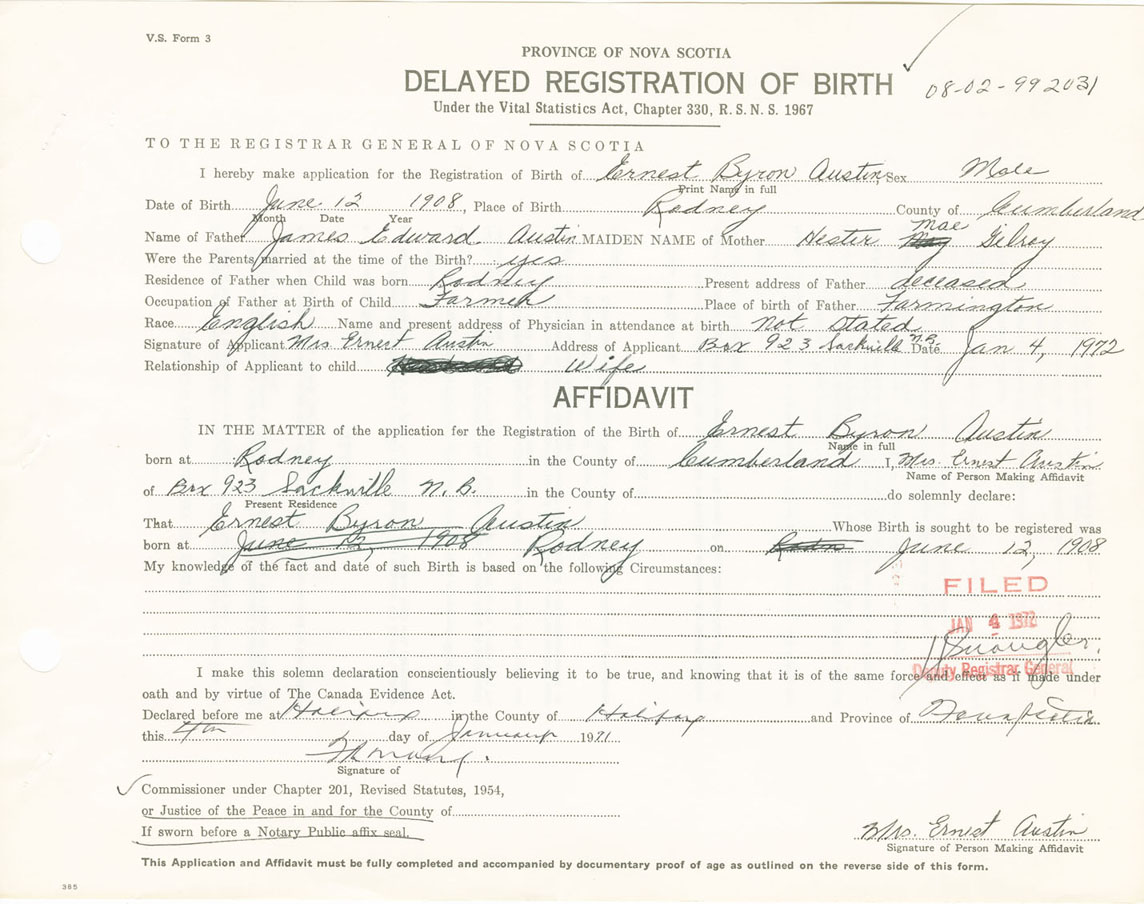 V.S. Form 3
PROVINCE OF NOVA SCOTIA
DELAYED REGISTRATION OF BIRTH
08-02-992031
Under the Vital Statistics Act, Chapter 330, R. S. N. S. 1967
TO THE REGISTRAR GENERAL OF NOVA SCOTIA
I hereby make application for the Registration of Birth of Ernest Byron Austin Sex Male
Print Name in full
Date of Birth June 12 1908, Place of Birth Rodney County of Cumberland
Month Date Year
Name of Father James Edward Austin MAIDEN NAME of Mother Hester May Mae Gilroy
Were the Parents married at the time of the Birth? yes
Residence of Father when Child was born Rodney Present address of Father deceased
Occupation of Father at Birth of Child Farmer Place of birth of Father Farmington
Race English Name and present address of Physician in attendance at birth Not stated
Signature of Applicant Mrs Ernest Austin Address of Applicant Box 923 Sackville N.B. Date Jan 4, 1972
Relationship of Applicant to child Wife
AFFIDAVIT
IN THE MATTER of the application for the Registration of the Birth of Ernest Byron Austin
Name in full
born at Rodney in the County of Cumberland I, Mrs. Ernest Austin
Name of Person Making Affidavit
of Box 923 Sackville N.B. in the County of do solemnly declare:
Present Residence
That Ernest Byron Austin Whose Birth is sought to be registered was
born at June 12, 1908 Rodney on June 12, 1908
My knowledge of the fact and date of such Birth is based on the following Circumstances:
FILED
JAN 4 1972
Deputy Registrar General
I make this solemn declaration conscientiously believing it to be true, and knowing that it is of the same force and effect as if made under
oath and by virtue of The Canada Evidence Act.
Declared before me at Halifax in the County of Halifax and Province of Nova Scotia
this 4th day of January 1971
Signature of
Commissioner under Chapter 201, Revised Statutes, 1954,
or Justice of the Peace in and for the County of
If sworn before a Notary Public affix seal.
Mrs. Ernest Austin
Signature of Person Making Affidavit
This Application and Affidavit must be fully completed and accompanied by documentary proof of age as outlined on the reverse side of this form.
385